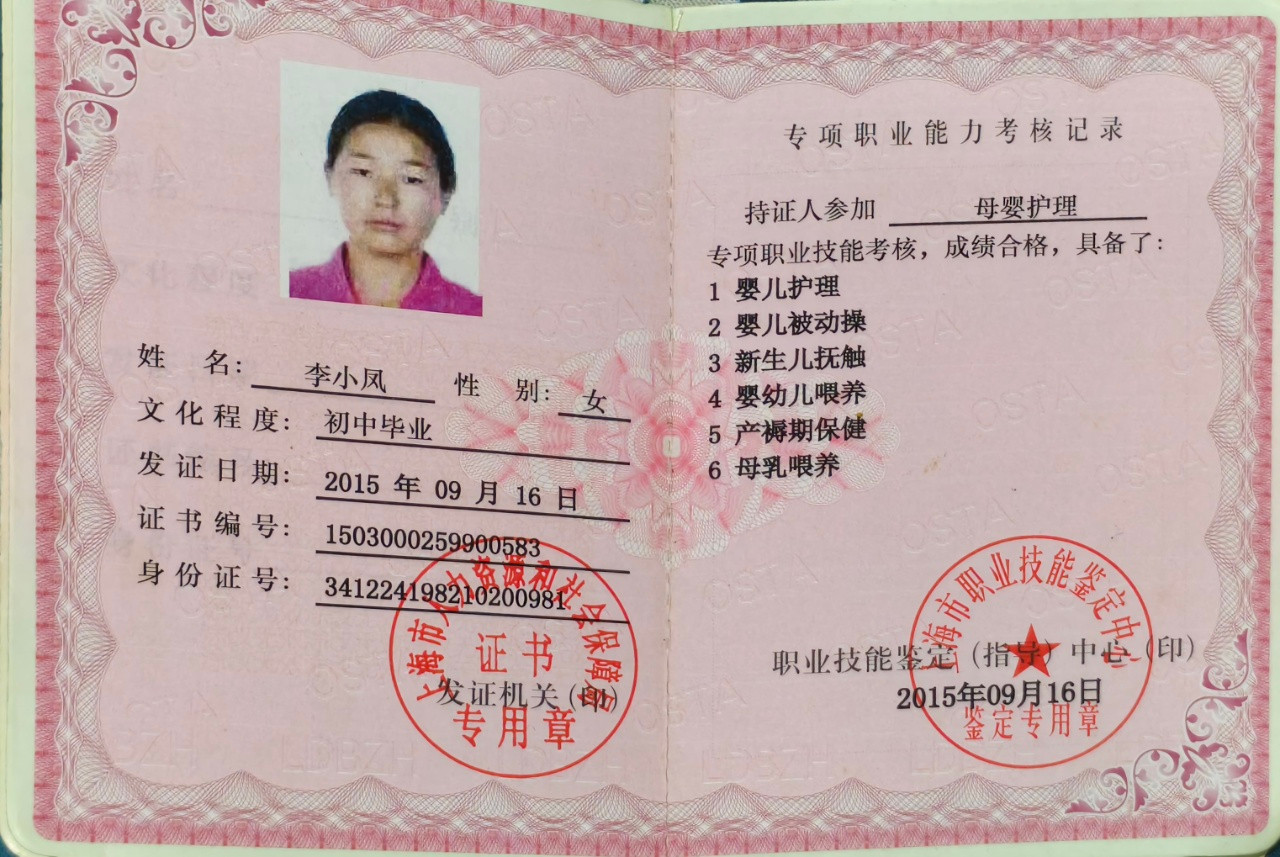 姓 名： 李小凤 性 别： 女
文化程度： 初中毕业
发证日期： 2015 年 09 月 16 日
证书编号： 1503000259900583
身份证号： 341224198210200981
上海市人力资源和社会保障局
证书
发证机关(印)
专用章
专项职业能力考核记录
持证人参加 母婴护理
专项职业技能考核，成绩合格，具备了：
1 婴儿护理
2 婴儿被动操
3 新生儿抚触
4 婴幼儿喂养
5 产褥期保健
6 母乳喂养
上海市职业技能鉴定中心
职业技能鉴定（指导）中心（印）
2015年09月16日
鉴定专用章
OSTA
LDBZH